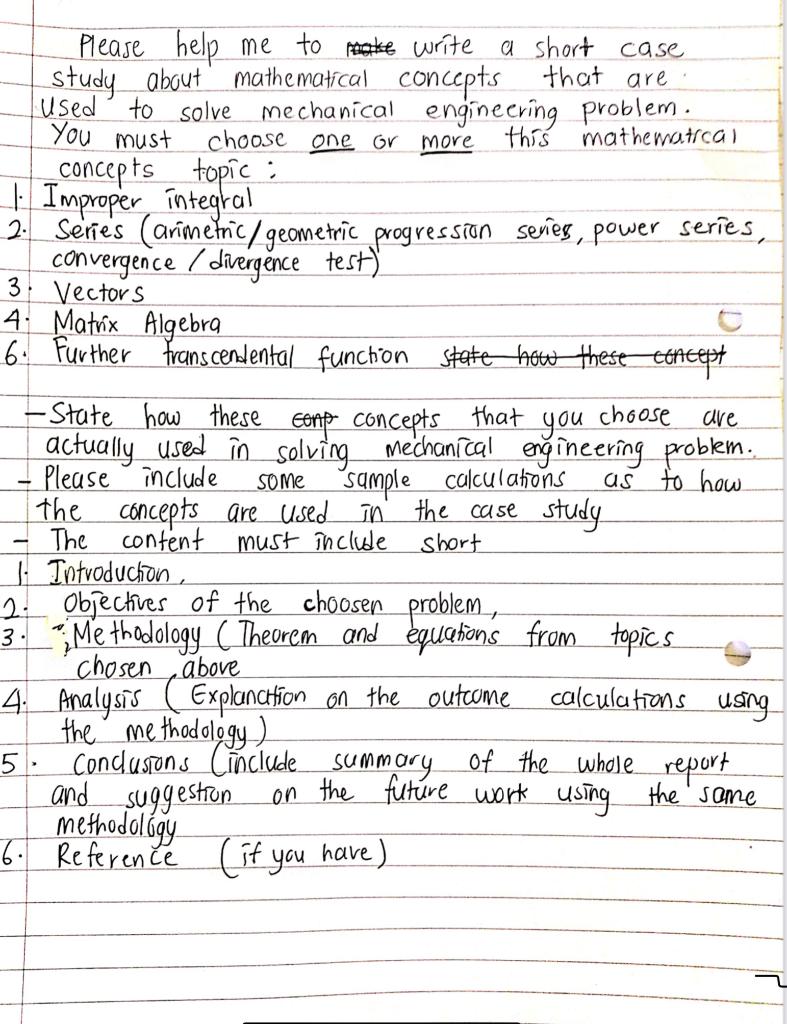 Please help me to make write a short case
study about mathematical concepts that are
used to solve mechanical engineering problem.
You must choose one or more this mathematical
concepts topic :
1. Improper integral
2. Series (arimetric/geometric progression series, power series,
convergence / divergence test)
3. Vectors
4. Matrix Algebra
6. Further transcendental function state how these concept
- State how these conp concepts that you choose are
actually used in solving mechanical engineering problem.
- Please include some sample calculations as to how
the concepts are used in the case study
- The content must include short
1. Introduction,
2. Objectives of the choosen problem,
3. Methodology (Theorem and equations from topics
chosen above
4. Analysis (Explanation on the outcome calculations using
the methodology)
5. Conclusions (include summary of the whole report
and suggestion on the future work using the same
methodology
6. Reference (if you have)